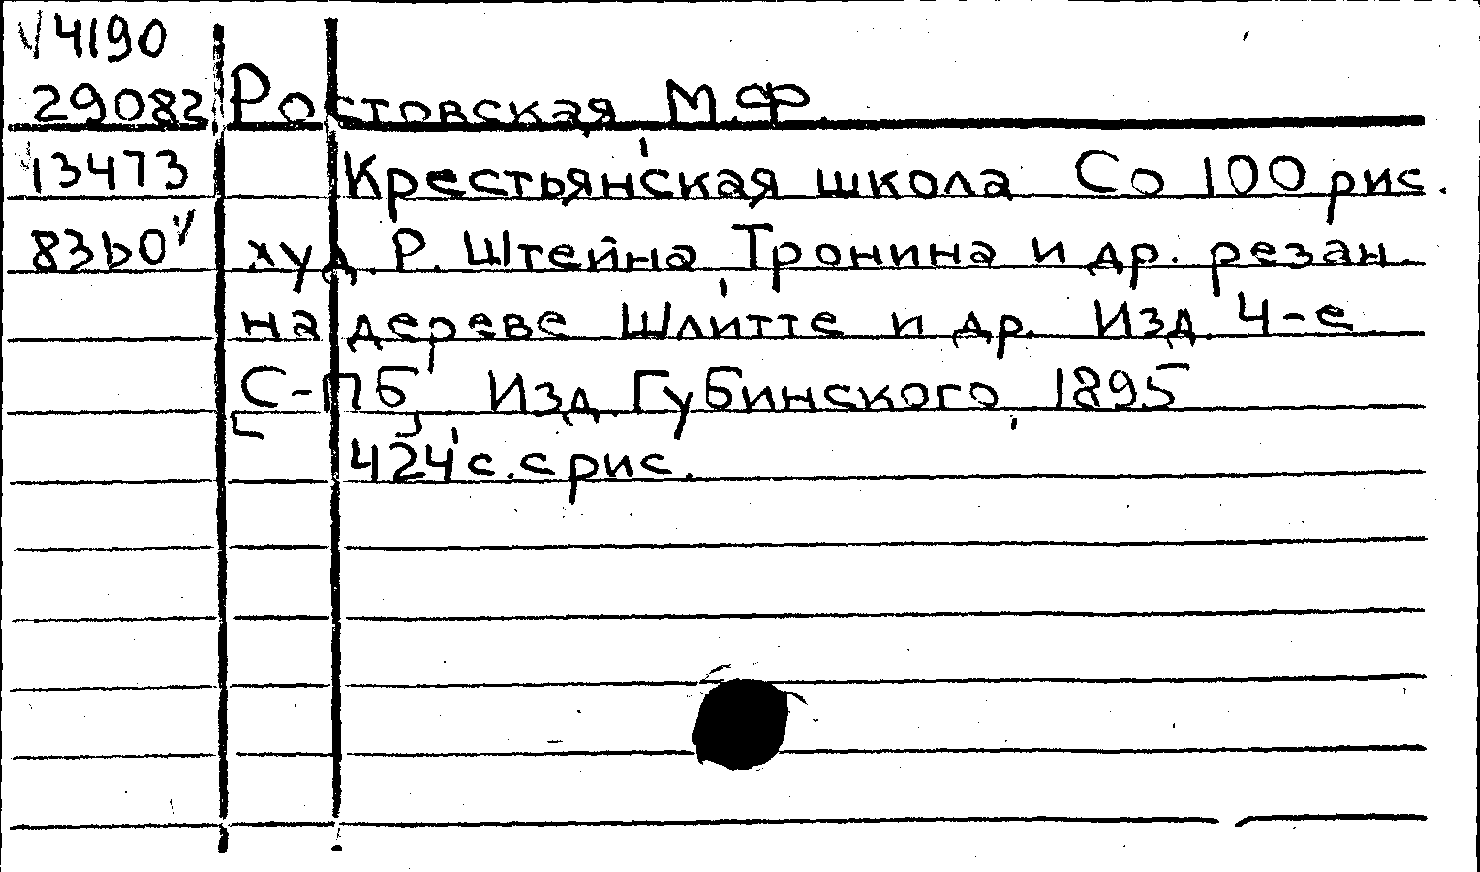 4190
29082 Ростовская, М.Ф.
13473 Крестьянская школа Со 100 рис.
8360 худ. Р. Штейна, Тронина и др. резан.
на дереве Шлитте и др. Изд. 4-е
С-Пб, Изд. Губинского, 1895
424 с. с рис.